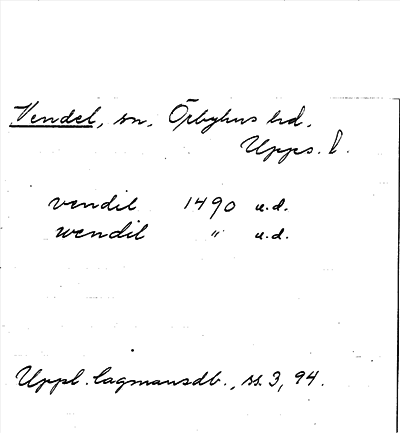 Vendel, sn. Örbyhus hd.
Upps. l.
vendil 1490 u.d.
wendil " u.d.
Uppl. lagmansdb., ss. 3, 94.